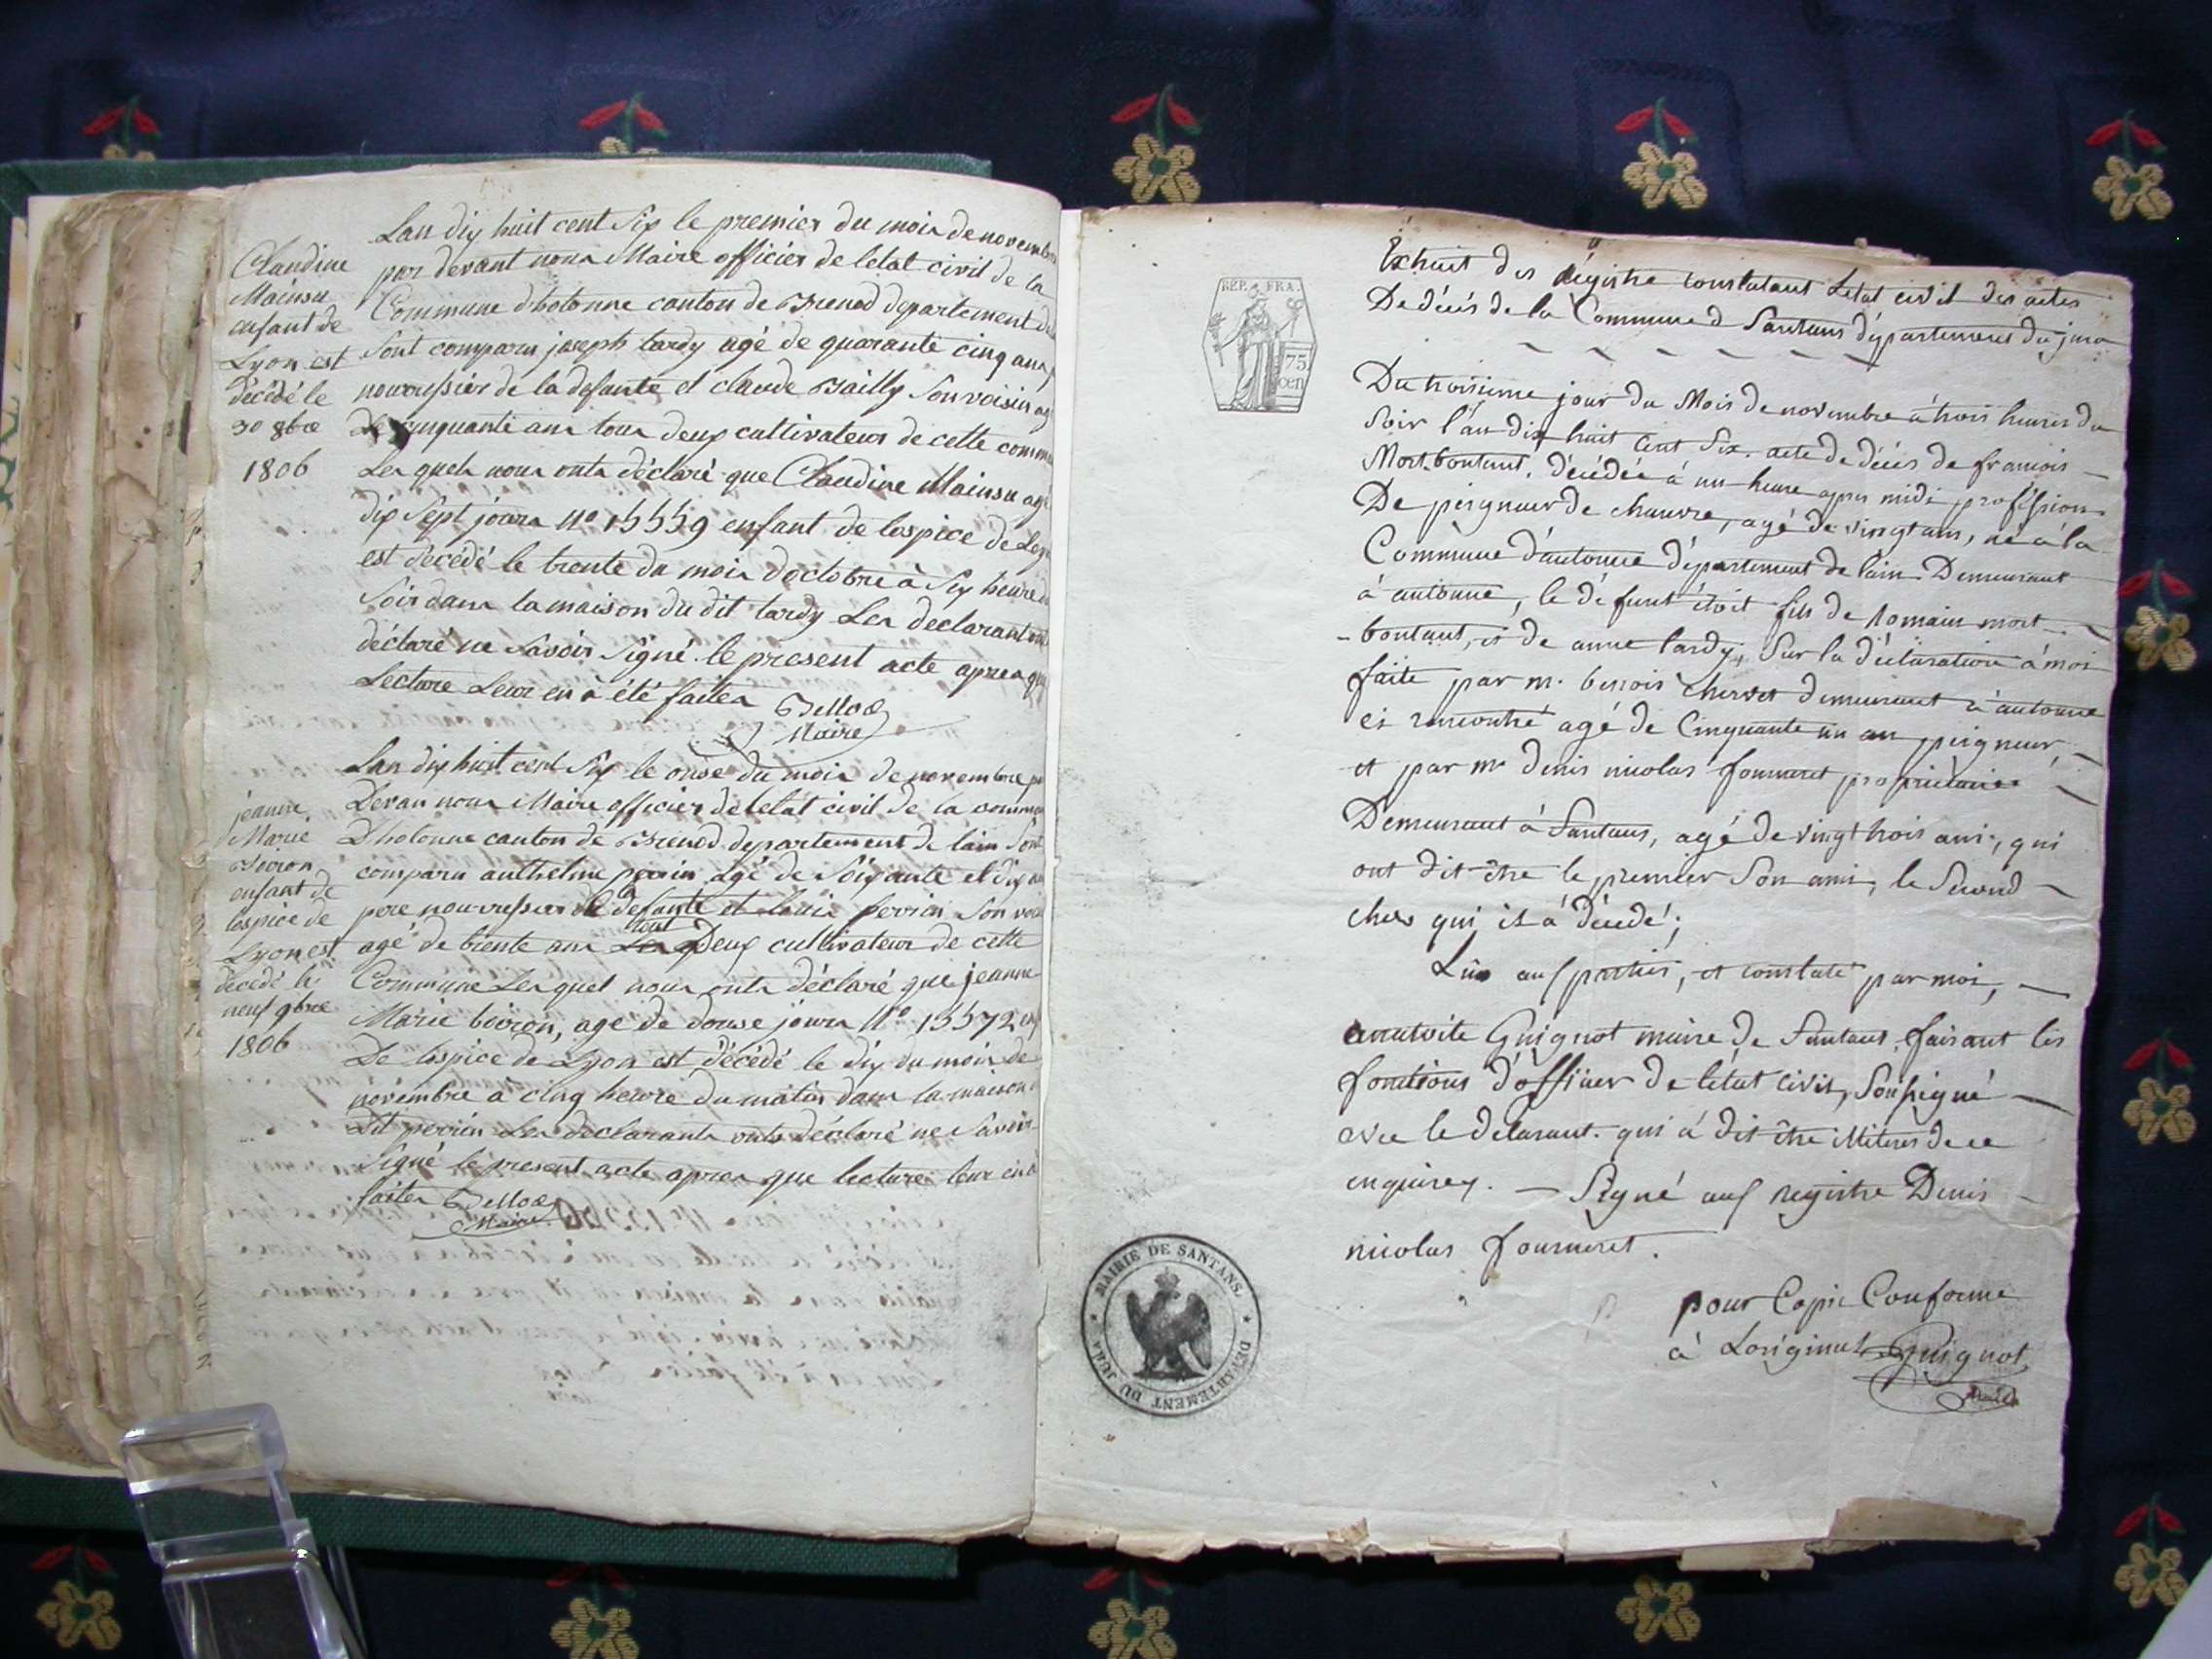 Lan dix huit cent Six le premier du mois de novembre
par devant nous Maire officier de letat civil de la
Commune dhotonne canton de Brenod departement de
Sont comparu joseph tardy agé de quarante cinq ans
nourrissier de la defante et claude Bailly Son voisin agé
De cinquante ans tous deux cultivateurs de cette commune
Les quels nous onts déclaré que Claudine Mainsu agé
dix Sept jours N° 15559 enfant de lospice de Lyon
est décédé le trente du mois doctobre à Six heure du
Soir dans la maison du dit tardy Les declarant onts
déclaré ne Savoir Signé le present acte apres que
Lecture Leur en à été faites Bellod
Maire
Claudine
Mainsu
enfant de
Lyon est
décédé le
30 8bre
1806
Lan dix huit cent Six le onse du mois de novembre par
Devan nous Maire officier de letat civil de la commune
Dhotonne canton de Brenod departement de lain Sont
comparu anthelme perrin agé de Soixante et dix ans
pere nourrissier de defante et louis perrin Son voisin
agé de trente ans tout Deux cultivateur de cette
Commune Lesquel nous onts déclaré que jeanne
Marie boiron, age de douse jours N° 15572 enf
De lospice de Lyon est décédé le dix du mois de
novembre à cinq heure du matin dans la maison
dit perrin Les declarants onts déclaré ne Savoir
Signé le present acte apres que lecture leur en à
faites Bellod
Maire
jeanne
Marie
Boiron
enfant de
lospice de
Lyon est
décédé le
neuf 9bre
1806
REP. FRA.
75
cen
Extrait des régistre constatant Letat civil des actes
De décés de la Commune d Santans département du jura
Du troisieme jour du Mois de novembre à trois heures du
Soir l'an dix huit cent Six. acte de décès de francois
Mort-bontant, décédée à un heure apres midi profession
De peigneur de chanvre, agé de vingt ans, né à la
Commune d'autonne département de l'ain Demeurant
à autonne, le défunt étoit fils de Romain mort-
-bontant, et de anne tardy, Sur la déclaration à moi
faite par mr. benois chervet demeurant à autonne
et rencontré agé de Cinquante un an peigneur,
et par mr denis nicolas fourneret propriétaire
Demeurant à Santans, agé de vingt trois ans, qui
ont dit être le premier Son ami, le Second
chez qui il à décedé;
Lûs aux parties, et constaté par moi,
anatoile Guignot maire de Santans, faisant les
fonctions d'officier de l'état civil, Soussigné
avec le délarant. qui à dit être iliteres de ce
enquirex. — Signé aux registre Denis
nicolas fourneret.
pour Copie Conforme
à Loriginal Guignot
Maire
MAIRIE DE SANTANS. DEPARTEMENT DU JURA